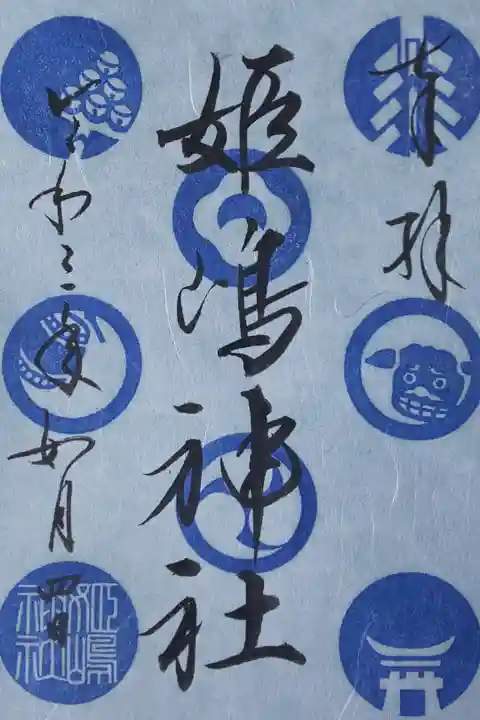 奉拝
姫嶋神社
令和三年如月四日
姫嶋神社